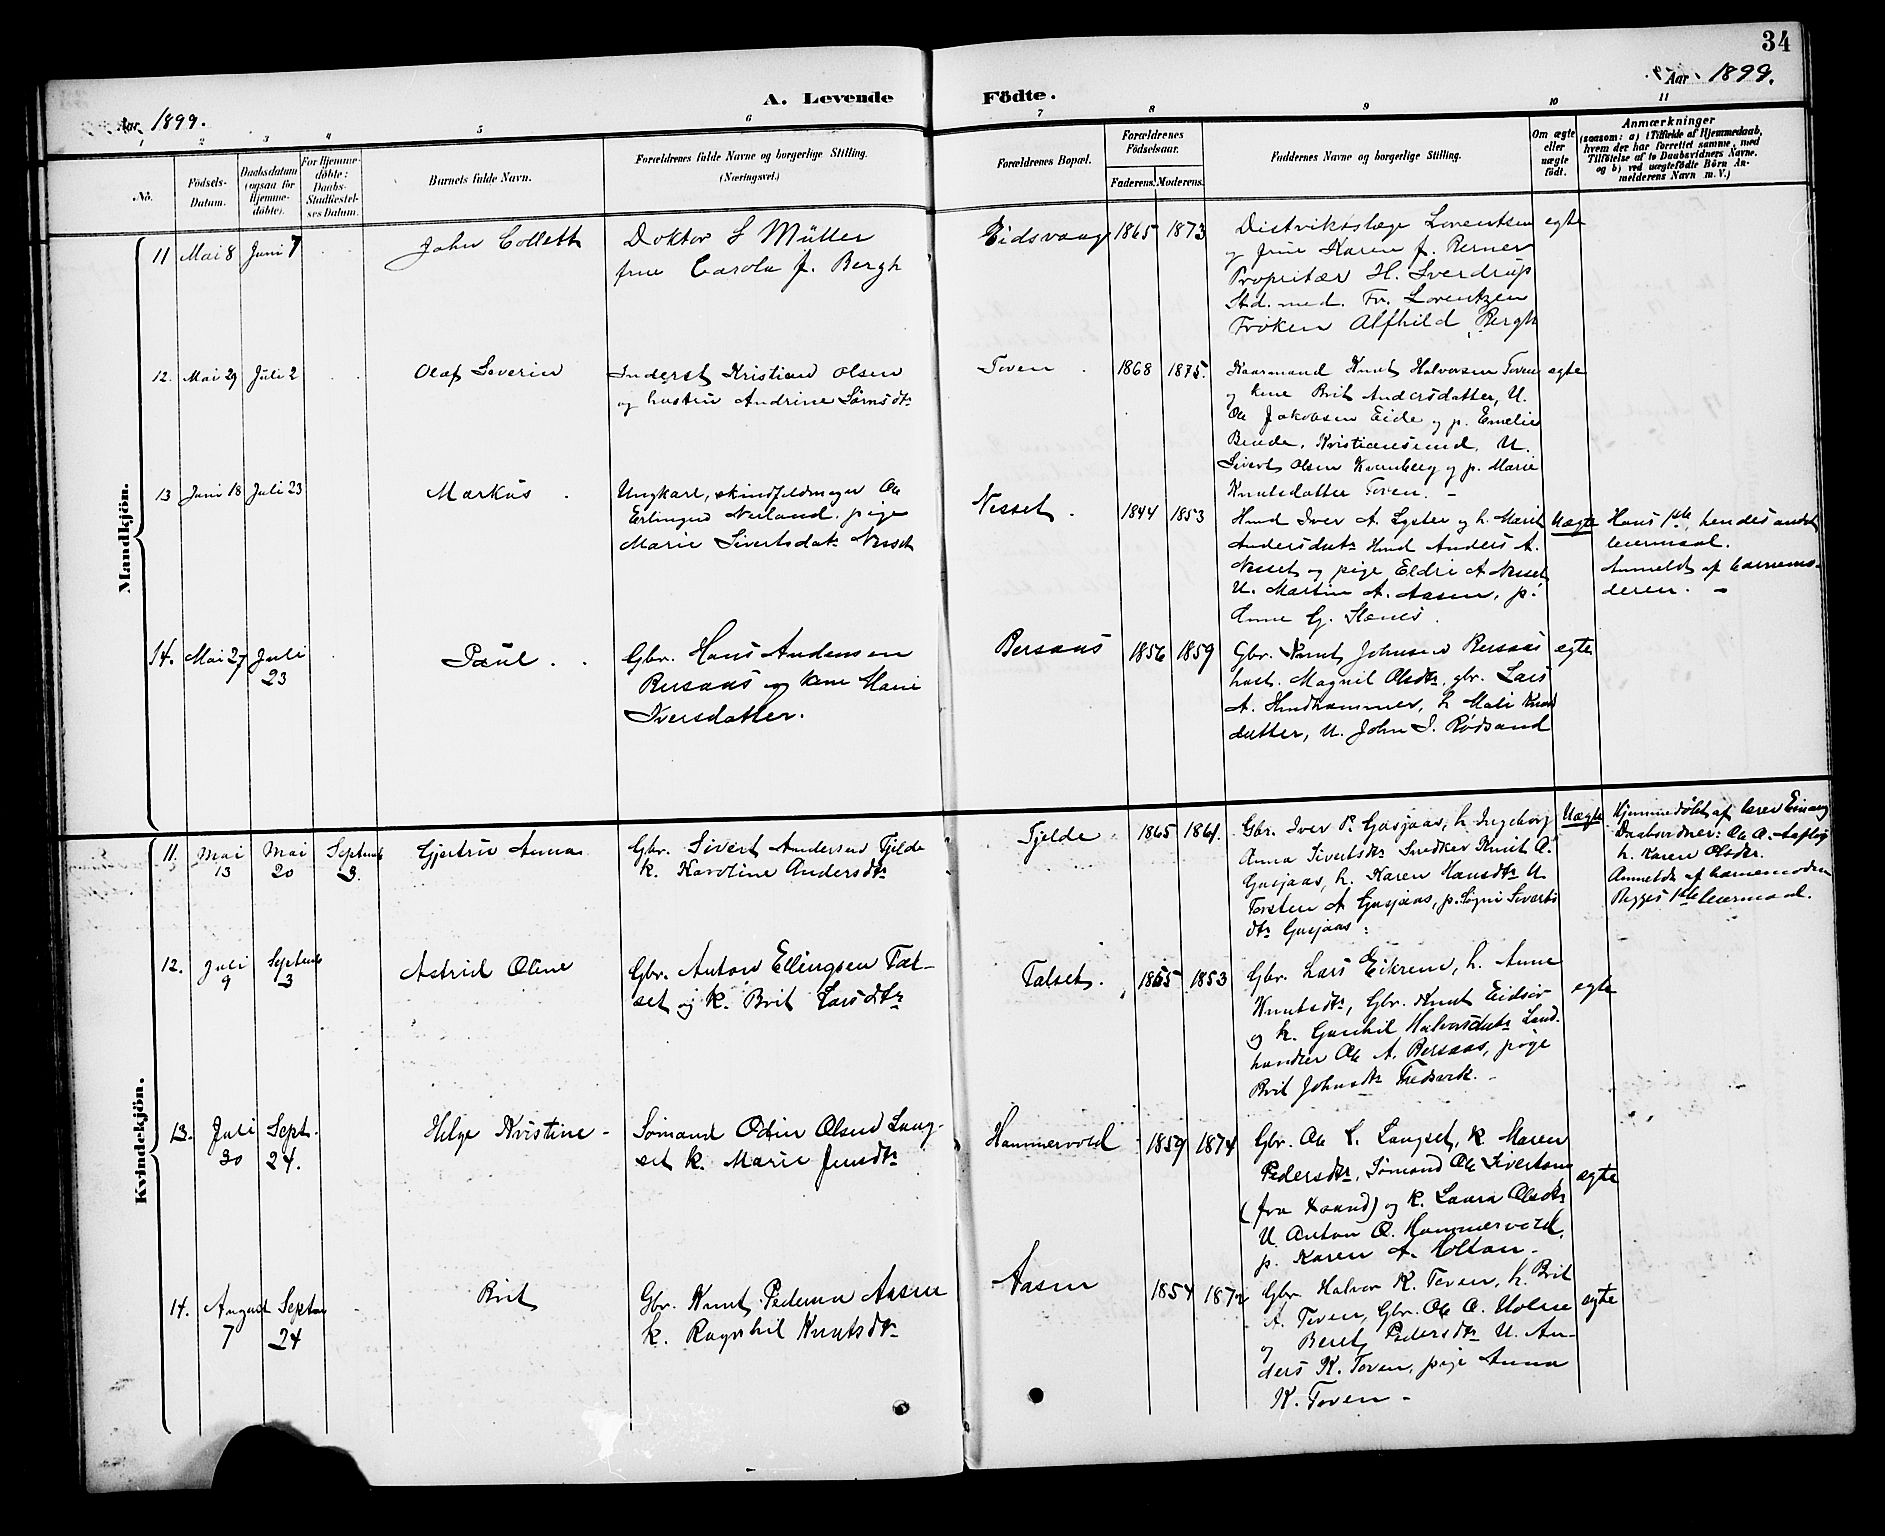 34
Aar 1899.
A. Levende
Födte.
Aar 1899.
1 2 3 4 5 6 7 8 9 10 11
No.
Födsels-
Datum.
Daabsdatum
(ogsaa for
Hjemme-
döbte).
For Hjemme-
döbte:
Daabs-
Stadfæstel-
ses Datum.
Barnets fulde Navn.
Forældrenes fulde Navne og borgerlige Stilling.
(Næringsvei.)
Forældrenes Bopæl.
Forældrenes
Födselsaar.
Faderens. Moderens.
Faddernes Navne og borgerlige Stilling.
Om ægte
eller
uægte
födt.
Anmærkninger
(saasom: a) i Tilfælde af Hjemmedaab,
hvem der har forrettet samme, med
Tilföielse af to Daabsvidners Navne,
og b) ved uægtefödte Börn An-
melderens Navn m. V.)
Mandkjön.
11 Mai 8 Juni 7
John Collett
Doktor S Müller
frue Carola f. Bergh
Eidsvaag 1865 1873
Distriktslæge Lorentsen
og frue Karen f. Berner
Proprietær H. Sverdrup
Std. med. Fr. Lorentzen
Frøken Alfhild Bergh
egte
12. Mai 29 Juli 2
Olaf Severin
Inderst Kristian Olsen
og hustru Andrine Sørnsdtr
Toven 1868 1875.
Kaarmand Knut Halvorsen Toven
og kone Brit Andersdatter, U.
Ole Jakobsen Eide og p. Emelie
Kristiansund, U.
Sivert Olsen og p. Marie
Knutsdatter Toven. -
egte
13 Juni 18 Juli 23
Markus
Ungkarl, skindfeldmager Ole
Erlingsen Neiland, pige
Marie Sivertsdatr Nesset
Nesset. 1844 1853
Hmd Iver A. Lyster og h. Marit
Andersdatr Hmd Anders A.
Nesset og pige Eldri A Nesset
U. Martin A. Aasen, p.
Anne G.
Uægte
Hans 1ste, hendes andet
leiermaal.
Anmeldt af barnemo-
deren. -
14. Mai 27 Juli
23
Paul.
Gbr. Hans Andersen
Bersaas og kone Mari
Iversdatter.
Bersaas 1856 1859
Gbr. Knut Johnsen Bersaas
hust. Magnil Olsdtr, gbr. Lars
A. Hindhammer, h Mali Knud
datter, U. John I. Rødsand
egte
Kvindekjön.
11. Mai
13
Mai
20
Septemb
3.
Gjertru Anna
Gbr. Sivert Andersen Tjelde
k. Karoline Andersdtr
Tjelde 1865 1861.
Gbr. Iver P. Gusjaas, h. Ingeborg
Anna Sivertsdtr Snedker Knut A.
Gusjaas, h. Karen Hansdtr U
Torsten A Gusjaas, p. Signi Siverts
dtr Gusjaas.
Uægte
Hjemmedøbt af lærer Einang
Daabsvidner: Ole A. Aafløy
h. Karen Olsdtr.
Anmeldt af barnemoderen
Begges 1ste leiermaal.
12. Juli
9
Septemb
3
Astrid Oline
Gbr. Anton Ellingsen Tal-
set og k. Brit Larsdtr
Talset. 1855 1853
Gbr. Lars Eikrem, h. Anne
Knutsdtr, Gbr. Knut Eidsør
og h. Gunhil Halvorsdatr Land-
handler Ole A. Bersaas, pige
Brit Johnsdtr -
egte
13. Juli
30
Sept.
24.
Helga Kristine -
Sømand Odin Olsen Lang-
set k. Marie Jensdtr
Hammervold 1859 1874
Gbr. Ole L. Langset, k Maren
Pedersdtr, Sømand Ole Sivertsen
(fra ) og k. Laura Olsdtr
U Anton O. Hammervold
p. Karen A. Holtan. -
egte
14. August
7
Septem
24
Brit
Gbr. Knut Pedersen Aasen
k. Ragnhil Knutsdtr
Aasen 1854 1872
Gbr. Halvor K. Toven, h. Brit
A. Toven, Gbr. Ole O. Holme
og Beret Pedersdtr U. An-
ders K. Toven, pige Anna
K. Toven -
egte